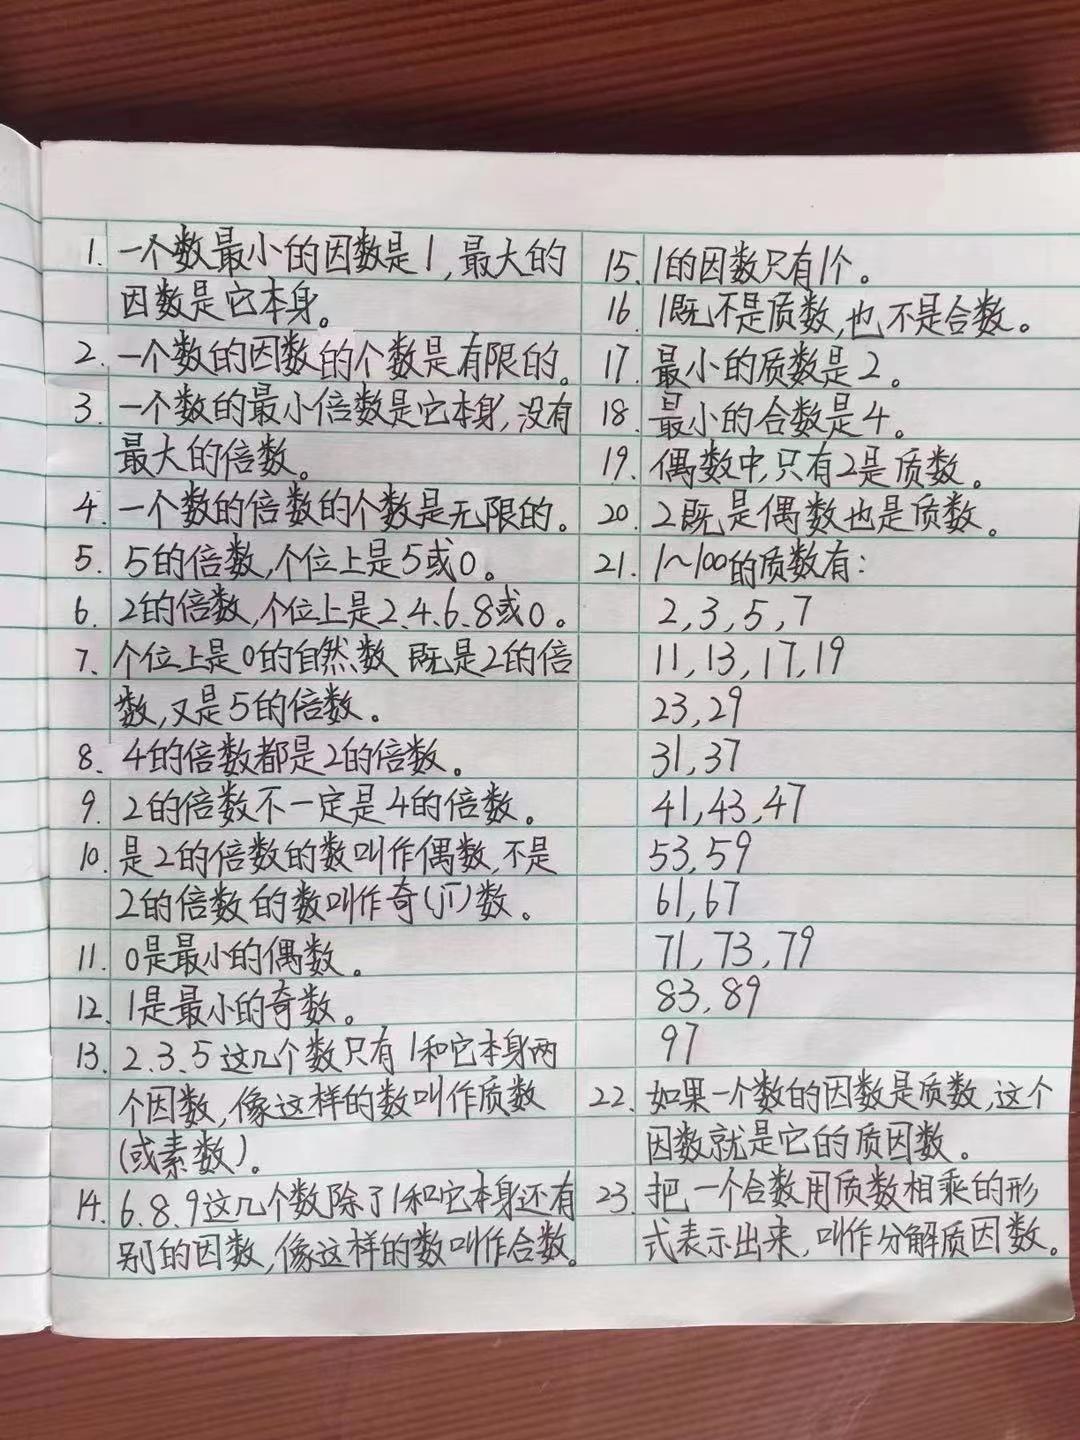 1. 一个数最小的因数是1,最大的
因数是它本身。
2. 一个数的因数的个数是有限的。
3. 一个数的最小倍数是它本身,没有
最大的倍数。
4. 一个数的倍数的个数是无限的。
5. 5的倍数,个位上是5或0。
6. 2的倍数,个位上是2、4、6、8或0。
7、个位上是0的自然数 既是2的倍
数,又是5的倍数。
8、4的倍数都是2的倍数。
9. 2的倍数不一定是4的倍数。
10. 是2的倍数的数叫作偶数,不是
2的倍数的数叫作奇(jī)数。
11. 0是最小的偶数。
12. 1是最小的奇数。
13. 2.3.5这几个数只有1和它本身两
个因数,像这样的数叫作质数
(或素数)。
14. 6.8.9这几个数除了1和它本身还有
别的因数,像这样的数叫作合数。
15. 1的因数只有1个。
16. 1既不是质数,也不是合数。
17. 最小的质数是2。
18. 最小的合数是4。
19. 偶数中,只有2是质数。
20. 2既是偶数也是质数。
21. 1~100的质数有:
2,3,5,7
11,13,17,19
23,29
31,37
41,43,47
53,59
61,67
71,73,79
83,89
97
22. 如果一个数的因数是质数,这个
因数就是它的质因数。
23. 把一个合数用质数相乘的形
式表示出来,叫作分解质因数。